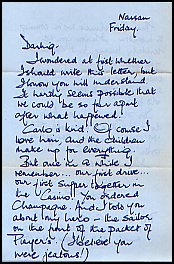 Nassau
Friday.
Darling,
I wondered at first whether
I should write this letter, but
I know you will understand.
It hardly seems possible that
we could be so far apart
after what happened!
Carlo is kind. Of course I
love him and the children
make up for everything.
But once in a while I
remember... our first drive...
our first supper together in
the Casino. You ordered
Champagne. And I told you
about my hero - the sailor
on the front of the packet of
Player's. (I believe you
were jealous!)